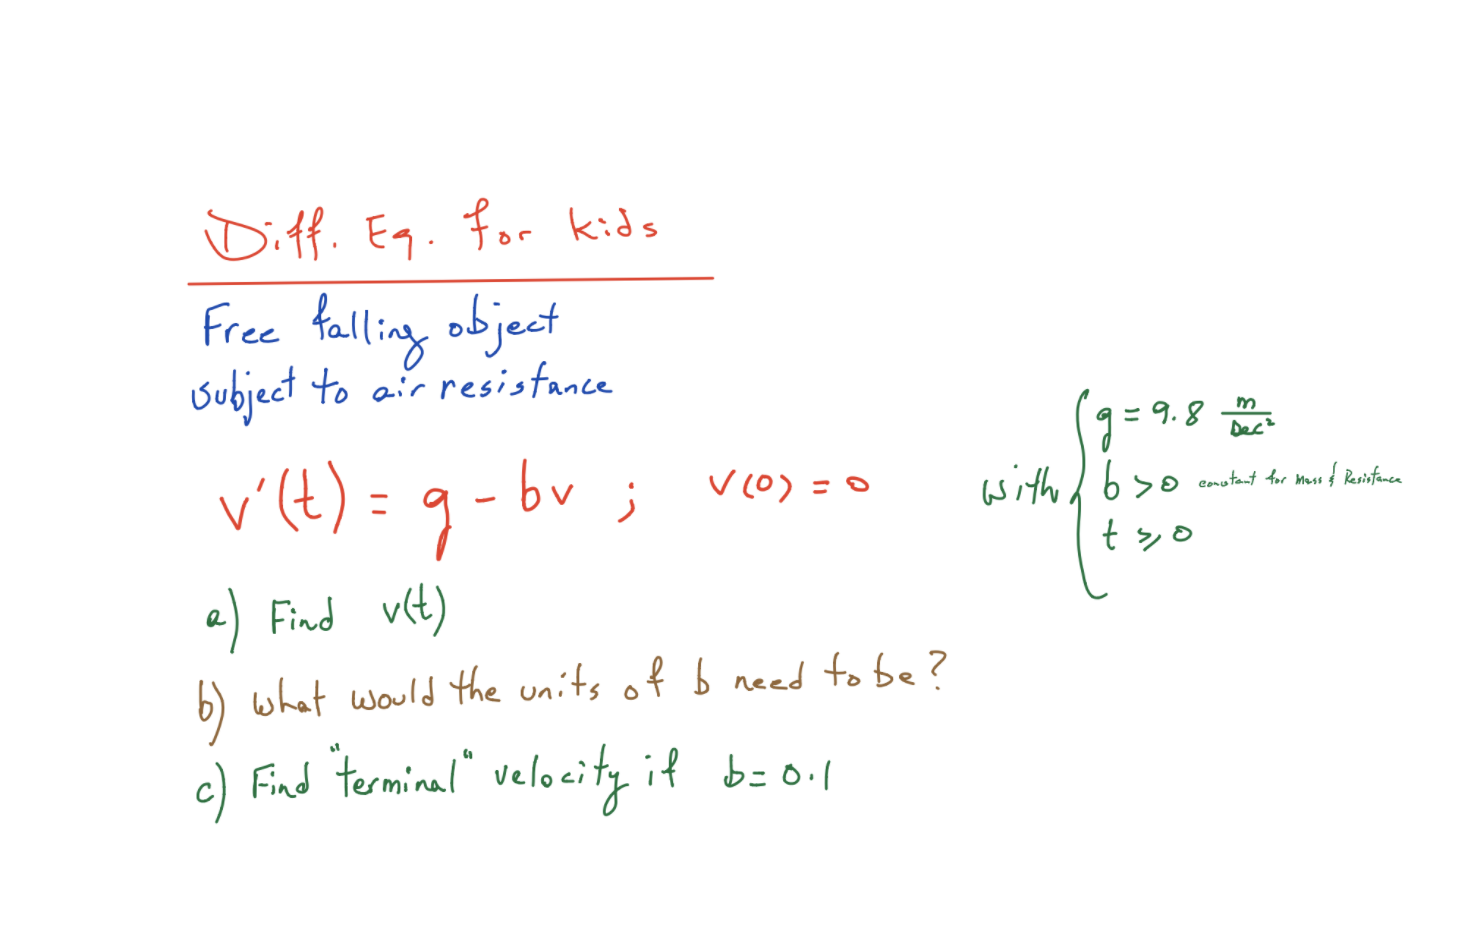 Diff. Eq. for kids
Free falling object
subject to air resistance
v'(t) = g - bv ; v(0) = 0
with { g = 9.8 m/sec²
b > 0 constant for Mass & Resistance
t ≥ 0
a) Find v(t)
b) what would the units of b need to be?
c) Find "terminal" velocity if b = 0.1